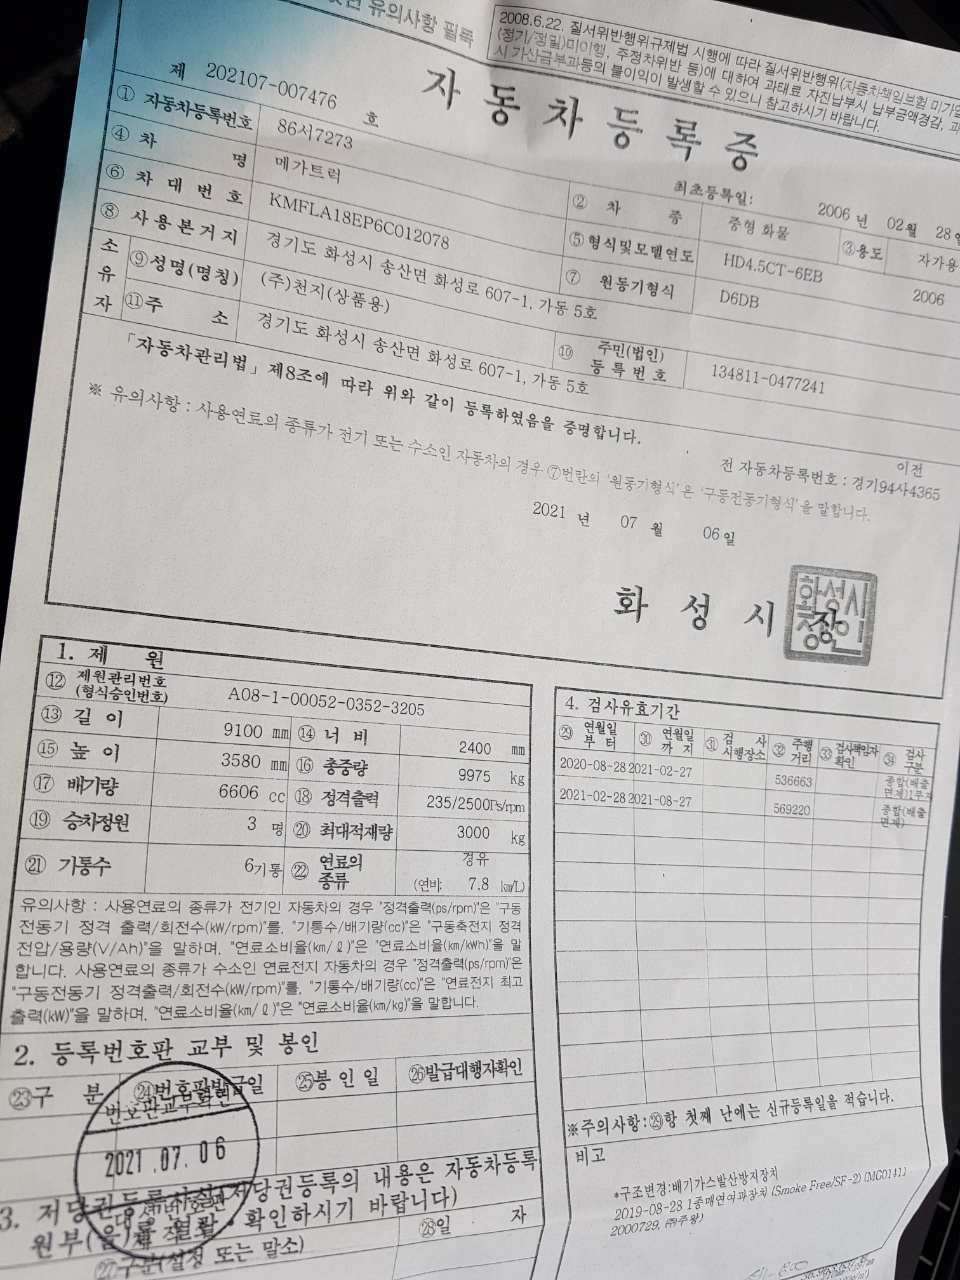 유의사항 필독
2008.6.22. 질서위반행위규제법 시행에 따라 질서위반행위(자동차책임보험 미가입
(정기/정밀)미이행, 주정차위반 등)에 대하여 과태료 자진납부시 납부금액경감, 과
시 가산금부과등의 불이익이 발생할 수 있으니 참고하시기 바랍니다.
제 202107-007476 호
자동차등록증
최초등록일: 2006 년 02월 28일
① 자동차등록번호 86서7273 ② 차 종 중형 화물 ③용도 자가용
④ 차 명 메가트럭 ⑤형식및모델연도 HD4.5CT-6EB 2006
⑥ 차 대 번 호 KMFLA18EP6C012078 ⑦ 원동기형식 D6DB
⑧ 사 용 본 거 지 경기도 화성시 송산면 화성로 607-1, 가동 5호
소유자 ⑨성명(명칭) (주)천지(상품용) ⑩ 주민(법인)등록번호 134811-0477241
⑪주 소 경기도 화성시 송산면 화성로 607-1, 가동 5호
「자동차관리법」 제8조에 따라 위와 같이 등록하였음을 증명합니다.
이전
전 자동차등록번호 : 경기94사4365
※ 유의사항 : 사용연료의 종류가 전기 또는 수소인 자동차의 경우 ⑦번란의 '원동기형식'은 '구동전동기형식'을 말합니다.
2021 년 07 월 06일
화 성 시 장
화성시장인
1. 제 원
⑫ 제원관리번호 (형식승인번호) A08-1-00052-0352-3205
⑬ 길 이 9100 mm ⑭ 너 비 2400 mm
⑮ 높 이 3580 mm ⑯ 총중량 9975 kg
⑰ 배기량 6606 cc ⑱ 정격출력 235/2500Ps/rpm
⑲ 승차정원 3 명 ⑳ 최대적재량 3000 kg
㉑ 기통수 6기통 ㉒ 연료의 종류 경유 (연비: 7.8 km/L)
유의사항 : 사용연료의 종류가 전기인 자동차의 경우 "정격출력(ps/rpm)"은 "구동
전동기 정격 출력/회전수(kW/rpm)"를, "기통수/배기량(cc)"은 "구동축전지 정격
전압/용량(V/Ah)"을 말하며, "연료소비율(km/ℓ)"은 "연료소비율(km/kWh)"을 말
합니다. 사용연료의 종류가 수소인 연료전지 자동차의 경우 "정격출력(ps/rpm)"은
"구동전동기 정격출력/회전수(kW/rpm)"를, "기통수/배기량(cc)"은 "연료전지 최고
출력(kW)"을 말하며, "연료소비율(km/ℓ)"은 "연료소비율(km/kg)"을 말합니다.
2. 등록번호판 교부 및 봉인
㉓구 분 ㉔번호판발급일 ㉕봉 인 일 ㉖발급대행자확인
번호판교부확인
2021.07.06
3. 저당권등록사실(저당권등록의 내용은 자동차등록
원부(을)를 열람·확인하시기 바랍니다)
㉗구분(설정 또는 말소) ㉘일 자
4. 검사유효기간
㉙ 연월일 부 터 ㉚ 연월일 까 지 ㉛ 검 사 시행장소 ㉜ 주행 거리 ㉝ 검사책임자 확인 ㉞ 검사 구분
2020-08-28 2021-02-27 536663
2021-02-28 2021-08-27 569220 종합(배출면제)
※주의사항:㉙항 첫째 난에는 신규등록일을 적습니다.
비고
*구조변경:배기가스발산방지장치
2019-08-28 1종매연여과장치 (Smoke Free/SF-2) (MG01411
2000729, ㈜주왕)